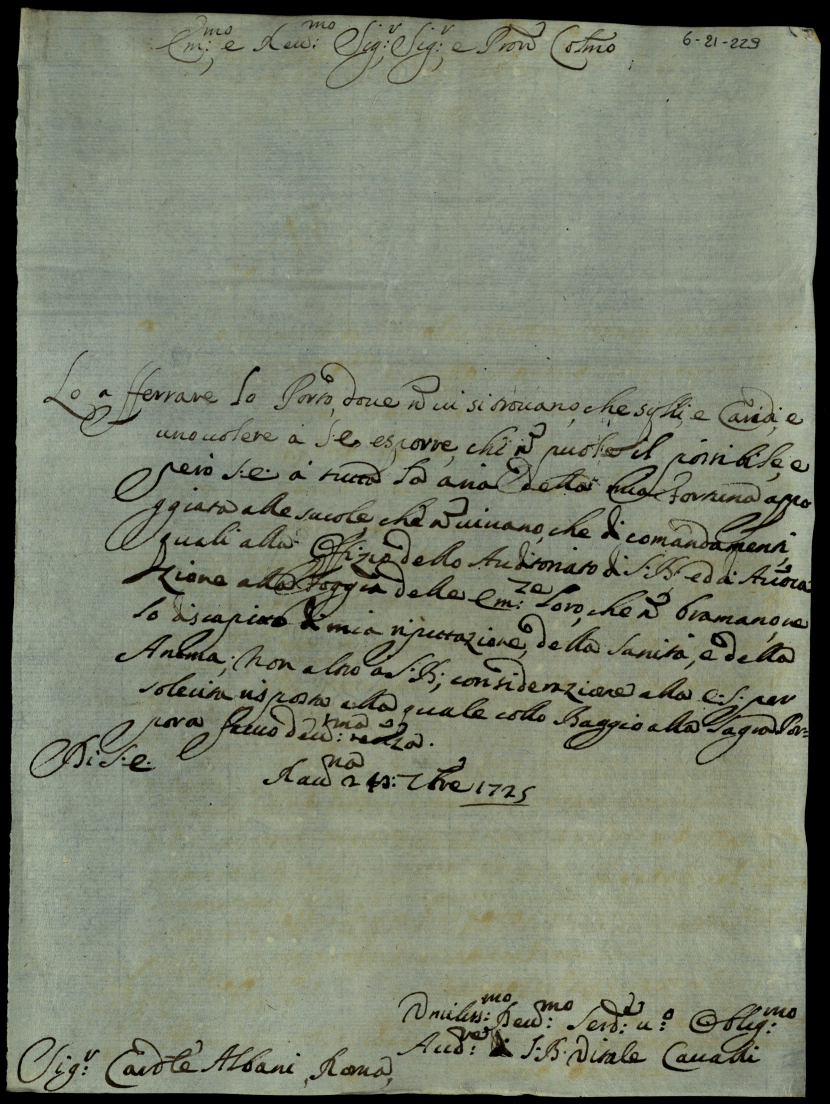 Em:mo e Reu:mo Sig:r Sig:r e Pron Colmo
6-21-229
Lo afferrare lo Porto, doue ñ ui si trouano, che scylli, e Caridi, e
uno uolere à S.e. esporre, che ñ puole il possibile, e
però S.e. à tutta la della mia Fortuna appo
ggiata alle sucole, che ñ uiuano, che di comandamenti,
quali alla Offizio dello Auditoriato di S.B. ed à
zione alla Foggia delle Em:ze Loro, che ñ bramano, ue
lo discapito di mia riputazione, della Sanità, e della
Anima; Non altro à S.B.; considerazione alla e.S. per
solecita risposta alla quale collo Baggio alla Sagra Por=
pora faccio deu:ma
Di S.e.
Rau:na 2 7bre 1725
Vmiliss:mo Deu:mo Serd:e u:o Oblig:mo
Aud:re di S.B. Vitale Caualli
Sig:r Cardle Albani, Roma,